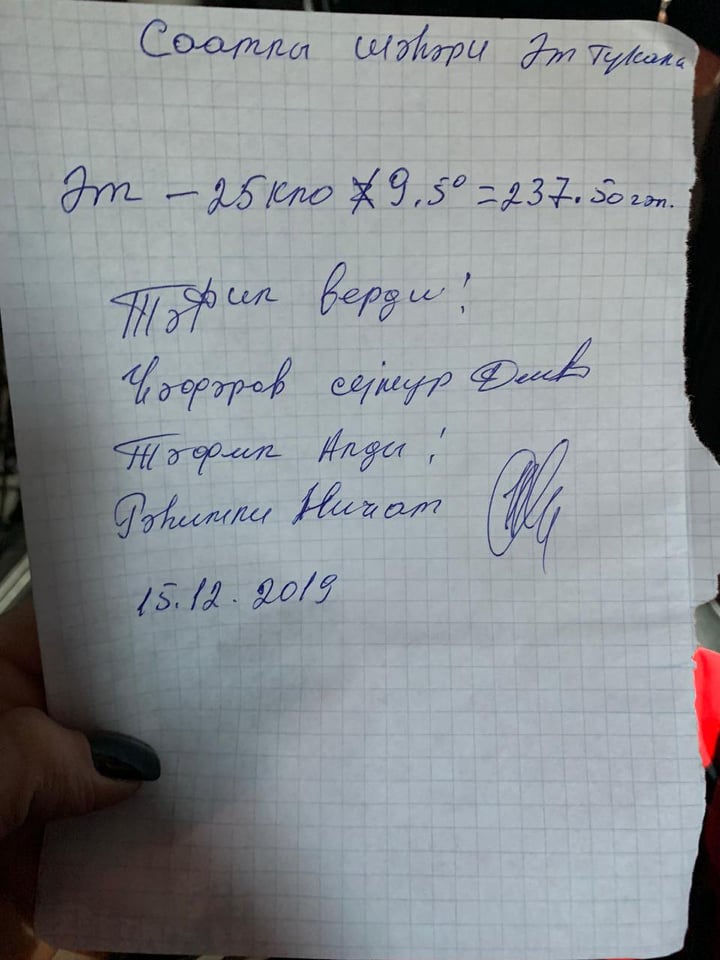 Саатлы шәһәри Әт Тукана
Әт – 25 кло X 9.50 = 237.50 гәп.
Тәфил верди!
Ҹәфәров сејмур
Тәфил Алды!
Рәһимли Ниҹат
15.12.2019